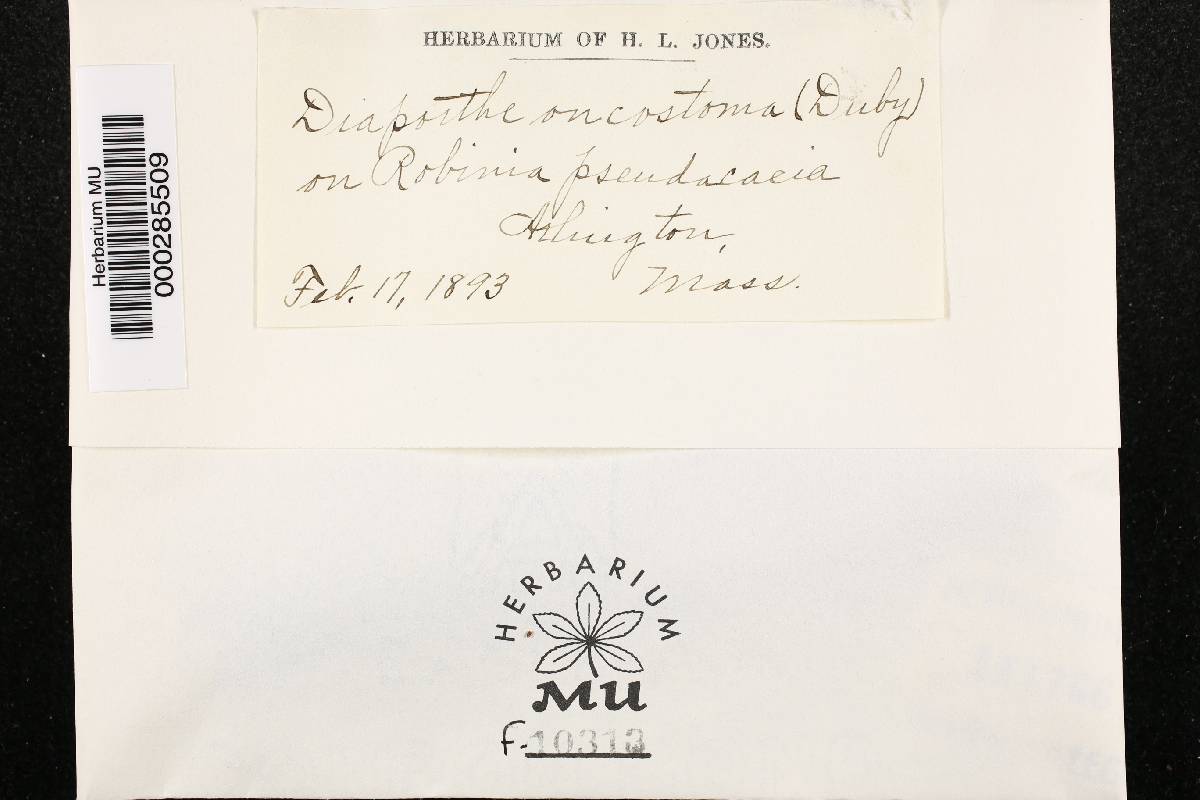 HERBARIUM OF H. L. JONES.
Diaporthe oncostoma (Duby)
on Robinia pseudacacia
Arlington,
Feb. 17, 1893 Mass.
Herbarium MU
000285509
HERBARIUM
MU
F-10313